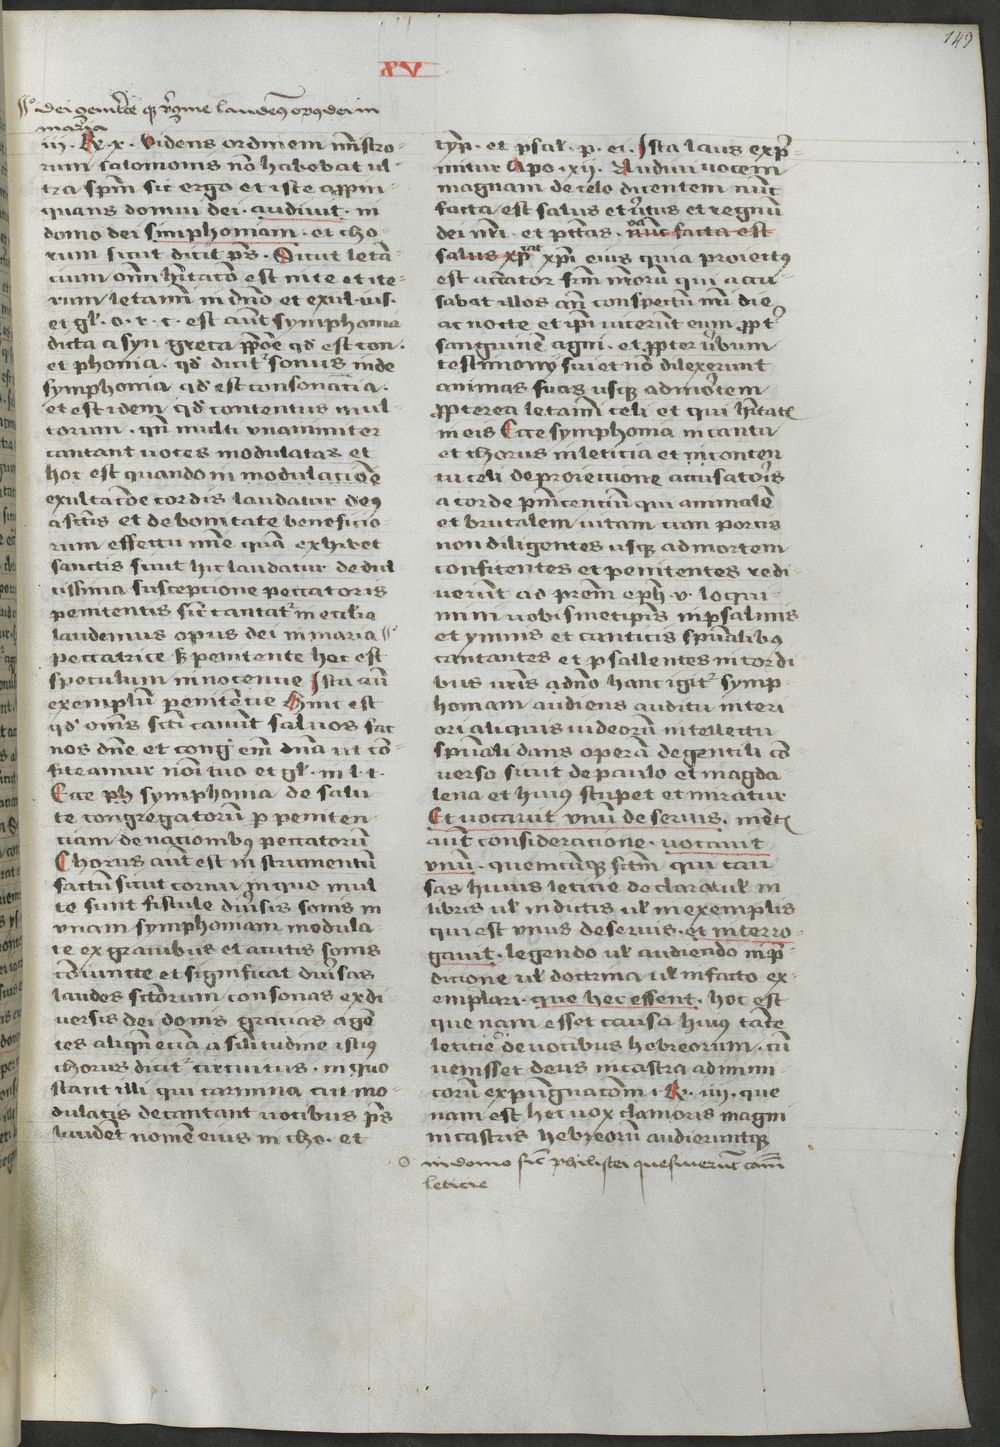 149
XV
dei genitrice et virgine laudem9 opus dei in
maria
iii. Re. x. Videns ordinem mīstro-
rum salomonis nō habebat ul-
tra spm̄ sic ergo et iste appin-
quans domui dei. audiuit. in
domo dei simphoniam. et cho-
rum sicut dicit ps̄. Sicut letā-
cium oīm hītacio est in te et ite-
rum letamī in dño et exul. ius.
et gl. o. r. c. est aūt symphonia
dicta a syn greca ppōe qd' est con.
et phonia. qd' dicit² sonus inde
symphonia qd' est consonācia.
et est idem qd' concentus mul-
torum. qn̄ multi vnanimiter
cantant uoces modulatas et
hoc est quando in modulaciōe
exultacōe cordis laudatur de9
a sctīs et de bonitate beneficio-
rum effectu mīe quā exhibet
sanctis sicut hic laudatur de dul-
cissima suscepcione peccatoris
penitentis sic cantat² in ecclia
laudemus opus dei in maria
peccatrice s3 penitente hoc est
speculum innocencie Ista aūt
exemplū penitēcie Hinc est
qd' om̄s sctī canūt saluos fac
nos dñe et cong' em̄ dn̄a ut cō-
fiteamur nōi tuo et gl. in l. t.
Ecce ph symphonia de salu-
te congregatorū p peniten-
ciam de nacionib9 peccatorū
Chorus aut est instrumentū
factū sicut cornu in quo mul-
te sunt fistule diuersis sonis in
vnam symphoniam modula-
te ex grauibus et acutis sonis
cōiuncte et significat diuersas
laudes sctōrum consonas ex di-
uersis dei donis gracias agē-
tes aliqn̄ eciā a similitudine isti9
chorus dicit² circuitus. in quo
stant illi qui carmina cū mo-
dulatis decantant uocibus ps̄
laudēt nomē eius in cho. et
tymp. et psal. p. ei. Ista laus exp̄-
mitur Apo. xii. Audiui uocem
magnam de celo dicentem nūc
facta est salus et uirtus et regnū
dei nr̄i. et ptās. nūc facta est
salus xp̄i xpī eius quia proiect9
est acc̄ator frm̄ nr̄orū qui accu-
sabat illos an̄ conspectū nr̄i die
ac nocte et ipī uicerūt eum ppt'
sanguinē agni. et ppter uerbum
testimonij sui et nō dilexerunt
animas suas usq3 ad mortem
ppterea letamī celi et qui hītatis
in eis Ecce symphonia in cantu
et chorus in leticia et in concen-
tu celi de proieccione accusatoris
a corde pnītencium qui animalē
et brutalem uitam cum porcis
non diligentes usq3 ad mortem
confitentes et penitentes redi-
uerūt ad prēm eph. v. loqui-
mini uobismetipsis in psalmis
et ymnis et canticis spūalib9
cantantes et psallentes in cordi-
bus uris dño hanc igit² symp-
honiam audiens auditu interi-
ori aliquis iudeorū intellectu
spūali dans operā de gentili cō-
uerso sicut de paulo et magda-
lena et hui9 stupet et miratur
Et uocauit vnū de seruis. mēt
aūt consideracione. uocauit
vnū. quemcūq3 sctm̄ qui cau-
sas huius leticie declarat ul' in
libris ul' in dictis ul' in exemplis
qui est vnus de seruis. et interro-
gauit. legendo ul' audiendo in p̄-
dicione ul' doctrina ul' in facto ex-
emplari. que hec essent. hoc est
que nam esset causa hui9 tāte
leticie de uocibus hebreorum. cū
uenisset deus in castra ad inimi-
corū expugnacōm i Re. iiii. que
nam est hec uox clamoris magni
in castris hebreorū audieruntq3
in domo sic philistei quesiuerūt cām
leticie